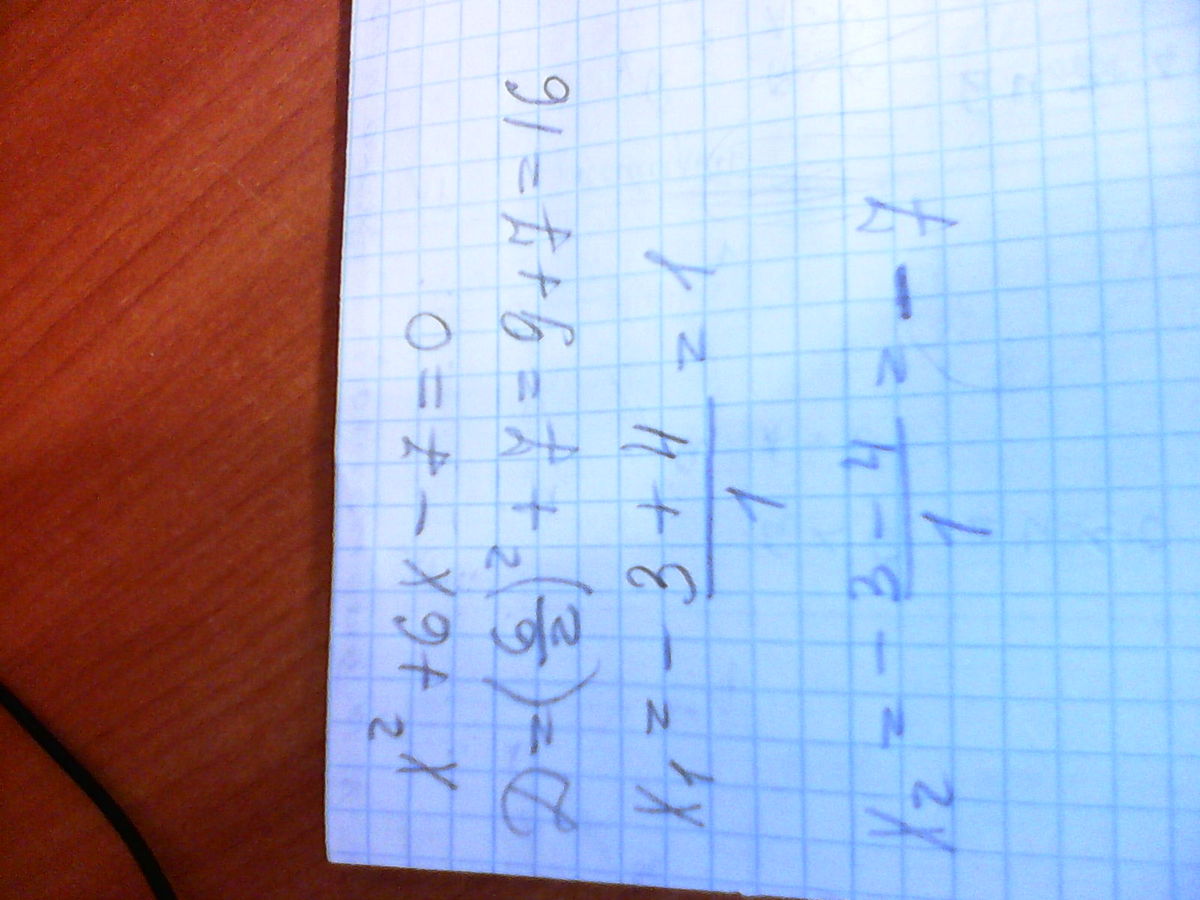 x² + 6x - 7 = 0
D = (6/2)² + 7 = 9 + 7 = 16
x₁ = -3 + 4 / 1 = 1
x₂ = -3 - 4 / 1 = -7